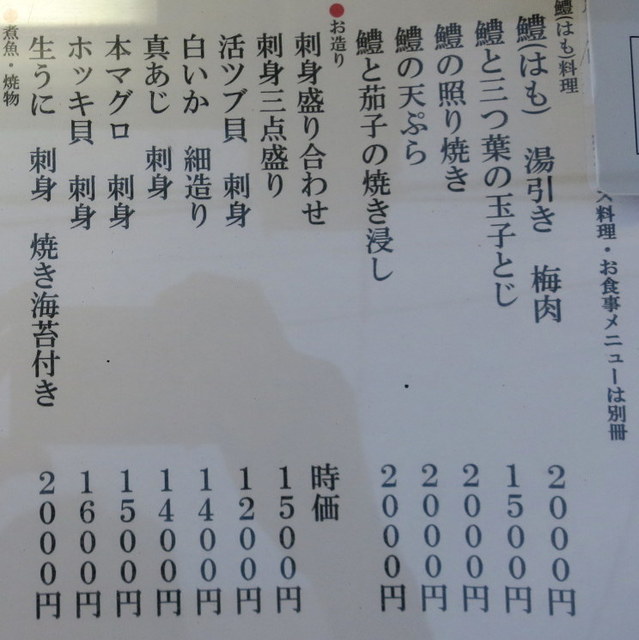 ス料理・お食事メニューは別冊
鱧(はも)料理
鱧(はも) 湯引き 梅肉 2000円
鱧と三つ葉の玉子とじ 1500円
鱧の照り焼き 2000円
鱧の天ぷら 2000円
鱧と茄子の焼き浸し 2000円
お造り
刺身盛り合わせ 時価
刺身三点盛り 1500円
活ツブ貝 刺身 1200円
白いか 細造り 1400円
真あじ 刺身 1400円
本マグロ 刺身 1500円
ホッキ貝 刺身 1600円
生うに 刺身 焼き海苔付き 2000円
煮魚・焼物